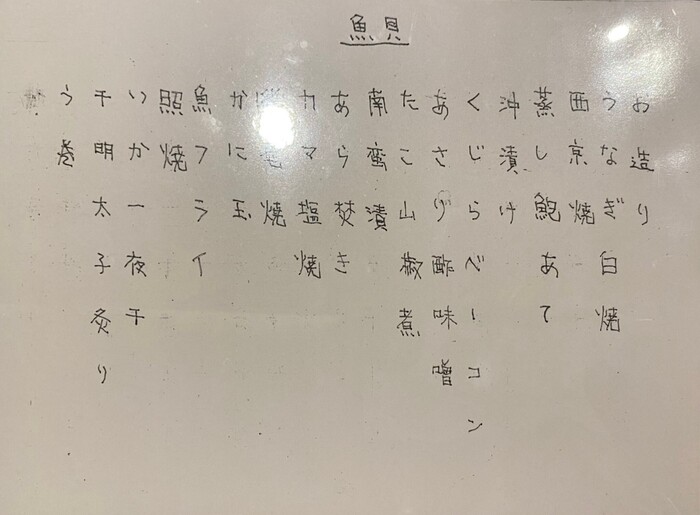 魚貝
お造り
うなぎ白焼
西京焼
蒸し鮑あて
沖漬け
くじらベーコン
あさり酢味噌
たこ山椒煮
南蛮漬
あら焚き
カマ塩焼
焼
かに玉
魚フライ
照焼
いか一夜干
干明太子炙り
う巻